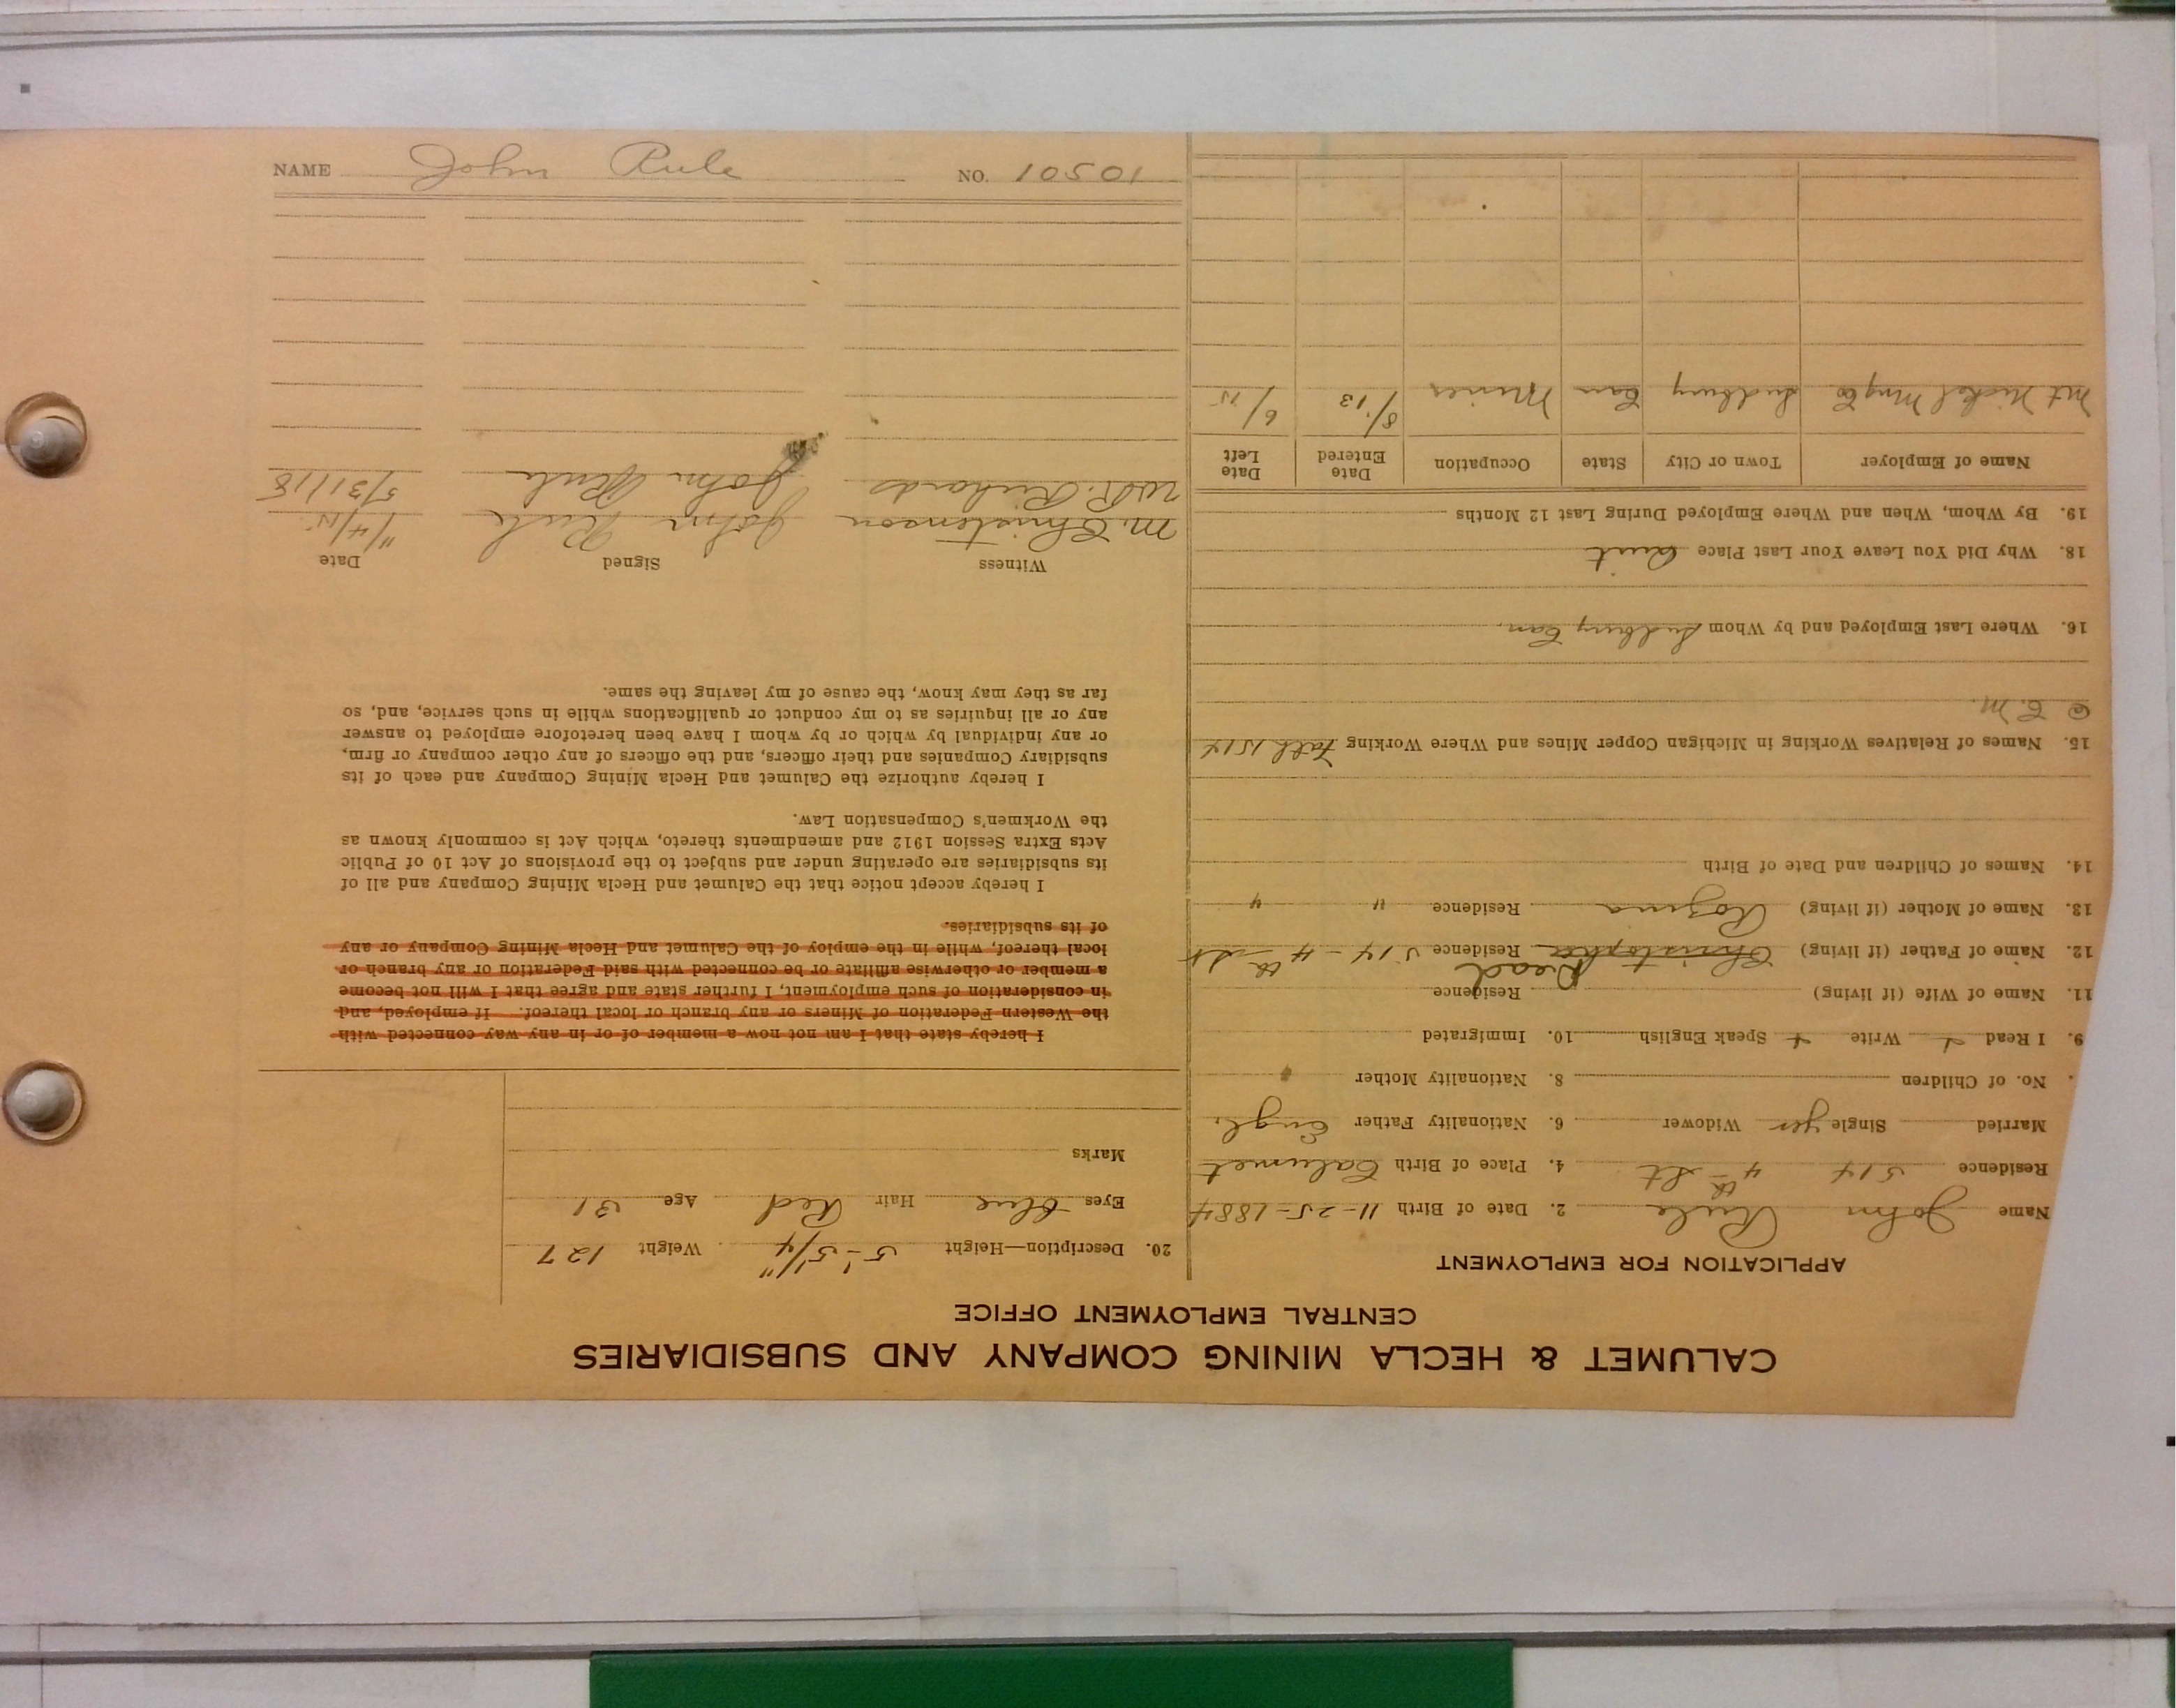 CALUMET & HECLA MINING COMPANY AND SUBSIDIARIES
CENTRAL EMPLOYMENT OFFICE
APPLICATION FOR EMPLOYMENT
Name John Rule 2. Date of Birth 11-25-1884
Residence 514 4th St 4. Place of Birth Calumet
Married Single yes Widower 6. Nationality Father Engl.
No. of Children 8. Nationality Mother "
9. I Read + Write + Speak English 10. Immigrated
11. Name of Wife (if living) Residence
Dead
12. Name of Father (if living) Christopher Residence 514-4th St
13. Name of Mother (if living) Rozina Residence " "
14. Names of Children and Date of Birth
15. Names of Relatives Working in Michigan Copper Mines and Where Working
@ C. M.
16. Where Last Employed and by Whom Sudbury Can.
18. Why Did You Leave Your Last Place Quit
19. By Whom, When and Where Employed During Last 12 Months
Name of Employer Town or City State Occupation Date Entered Date Left
Mt Nickel Mng Co Sudbury Can Miner 8/13 6/15
20. Description—Height 5'-5 1/4" Weight 127
Eyes blue Hair Red Age 31
Marks
I hereby state that I am not now a member of or in any way connected with
the Western Federation of Miners or any branch or local thereof. If employed, and
in consideration of such employment, I further state and agree that I will not become
a member or otherwise affiliate or be connected with said Federation or any branch or
local thereof, while in the employ of the Calumet and Hecla Mining Company or any
of its subsidiaries.
I hereby accept notice that the Calumet and Hecla Mining Company and all of
its subsidiaries are operating under and subject to the provisions of Act 10 of Public
Acts Extra Session 1912 and amendments thereto, which Act is commonly known as
the Workmen's Compensation Law.
I hereby authorize the Calumet and Hecla Mining Company and each of its
subsidiary Companies and their officers, and the officers of any other company or firm,
or any individual by which or by whom I have been heretofore employed to answer
any or all inquiries as to my conduct or qualifications while in such service, and, so
far as they may know, the cause of my leaving the same.
Witness Signed Date
M. Christenson John Rule 11/4/15
W.R. Richards John Rule 5/31/18
NAME John Rule NO. 10501